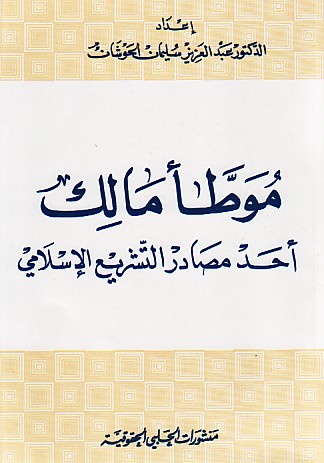 إعداد
الدكتور عبد العزيز سليمان الحوشان
موطَّأ مالك
أحد مصادر التشريع الإسلامي
منشورات الحلبي الحقوقية